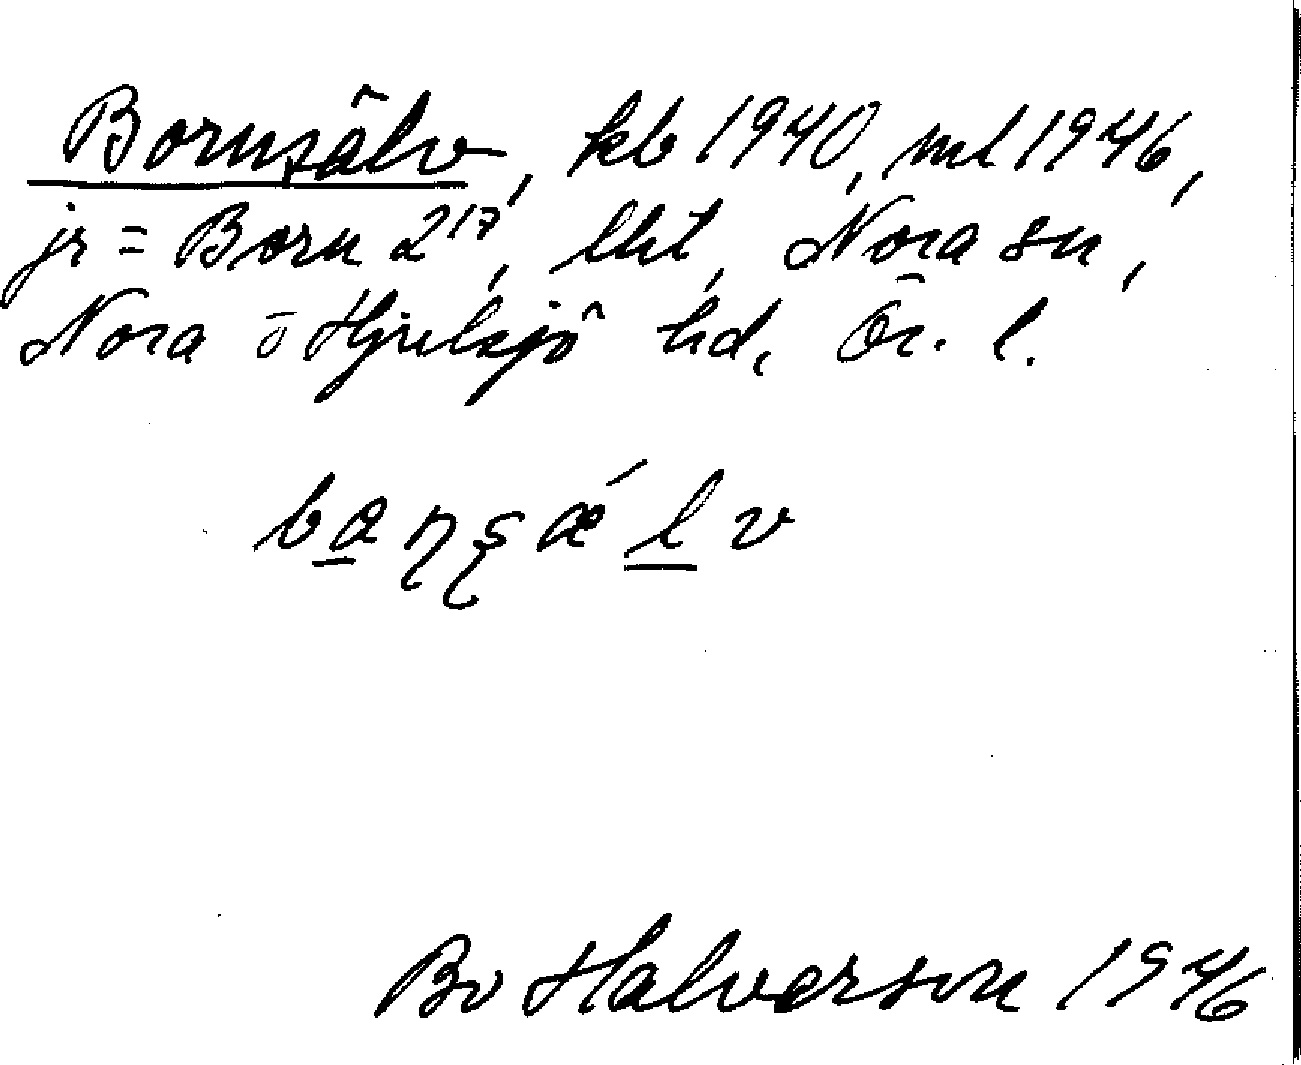 Bornsälv, kb 1940, ml 1946,
jr = Born 2¹⁷, lht, Nora sn,
Nora o Hjulsjö hd, Ör. l.
ba̲ɳʂǽl̲v
Bo Halverson 1946